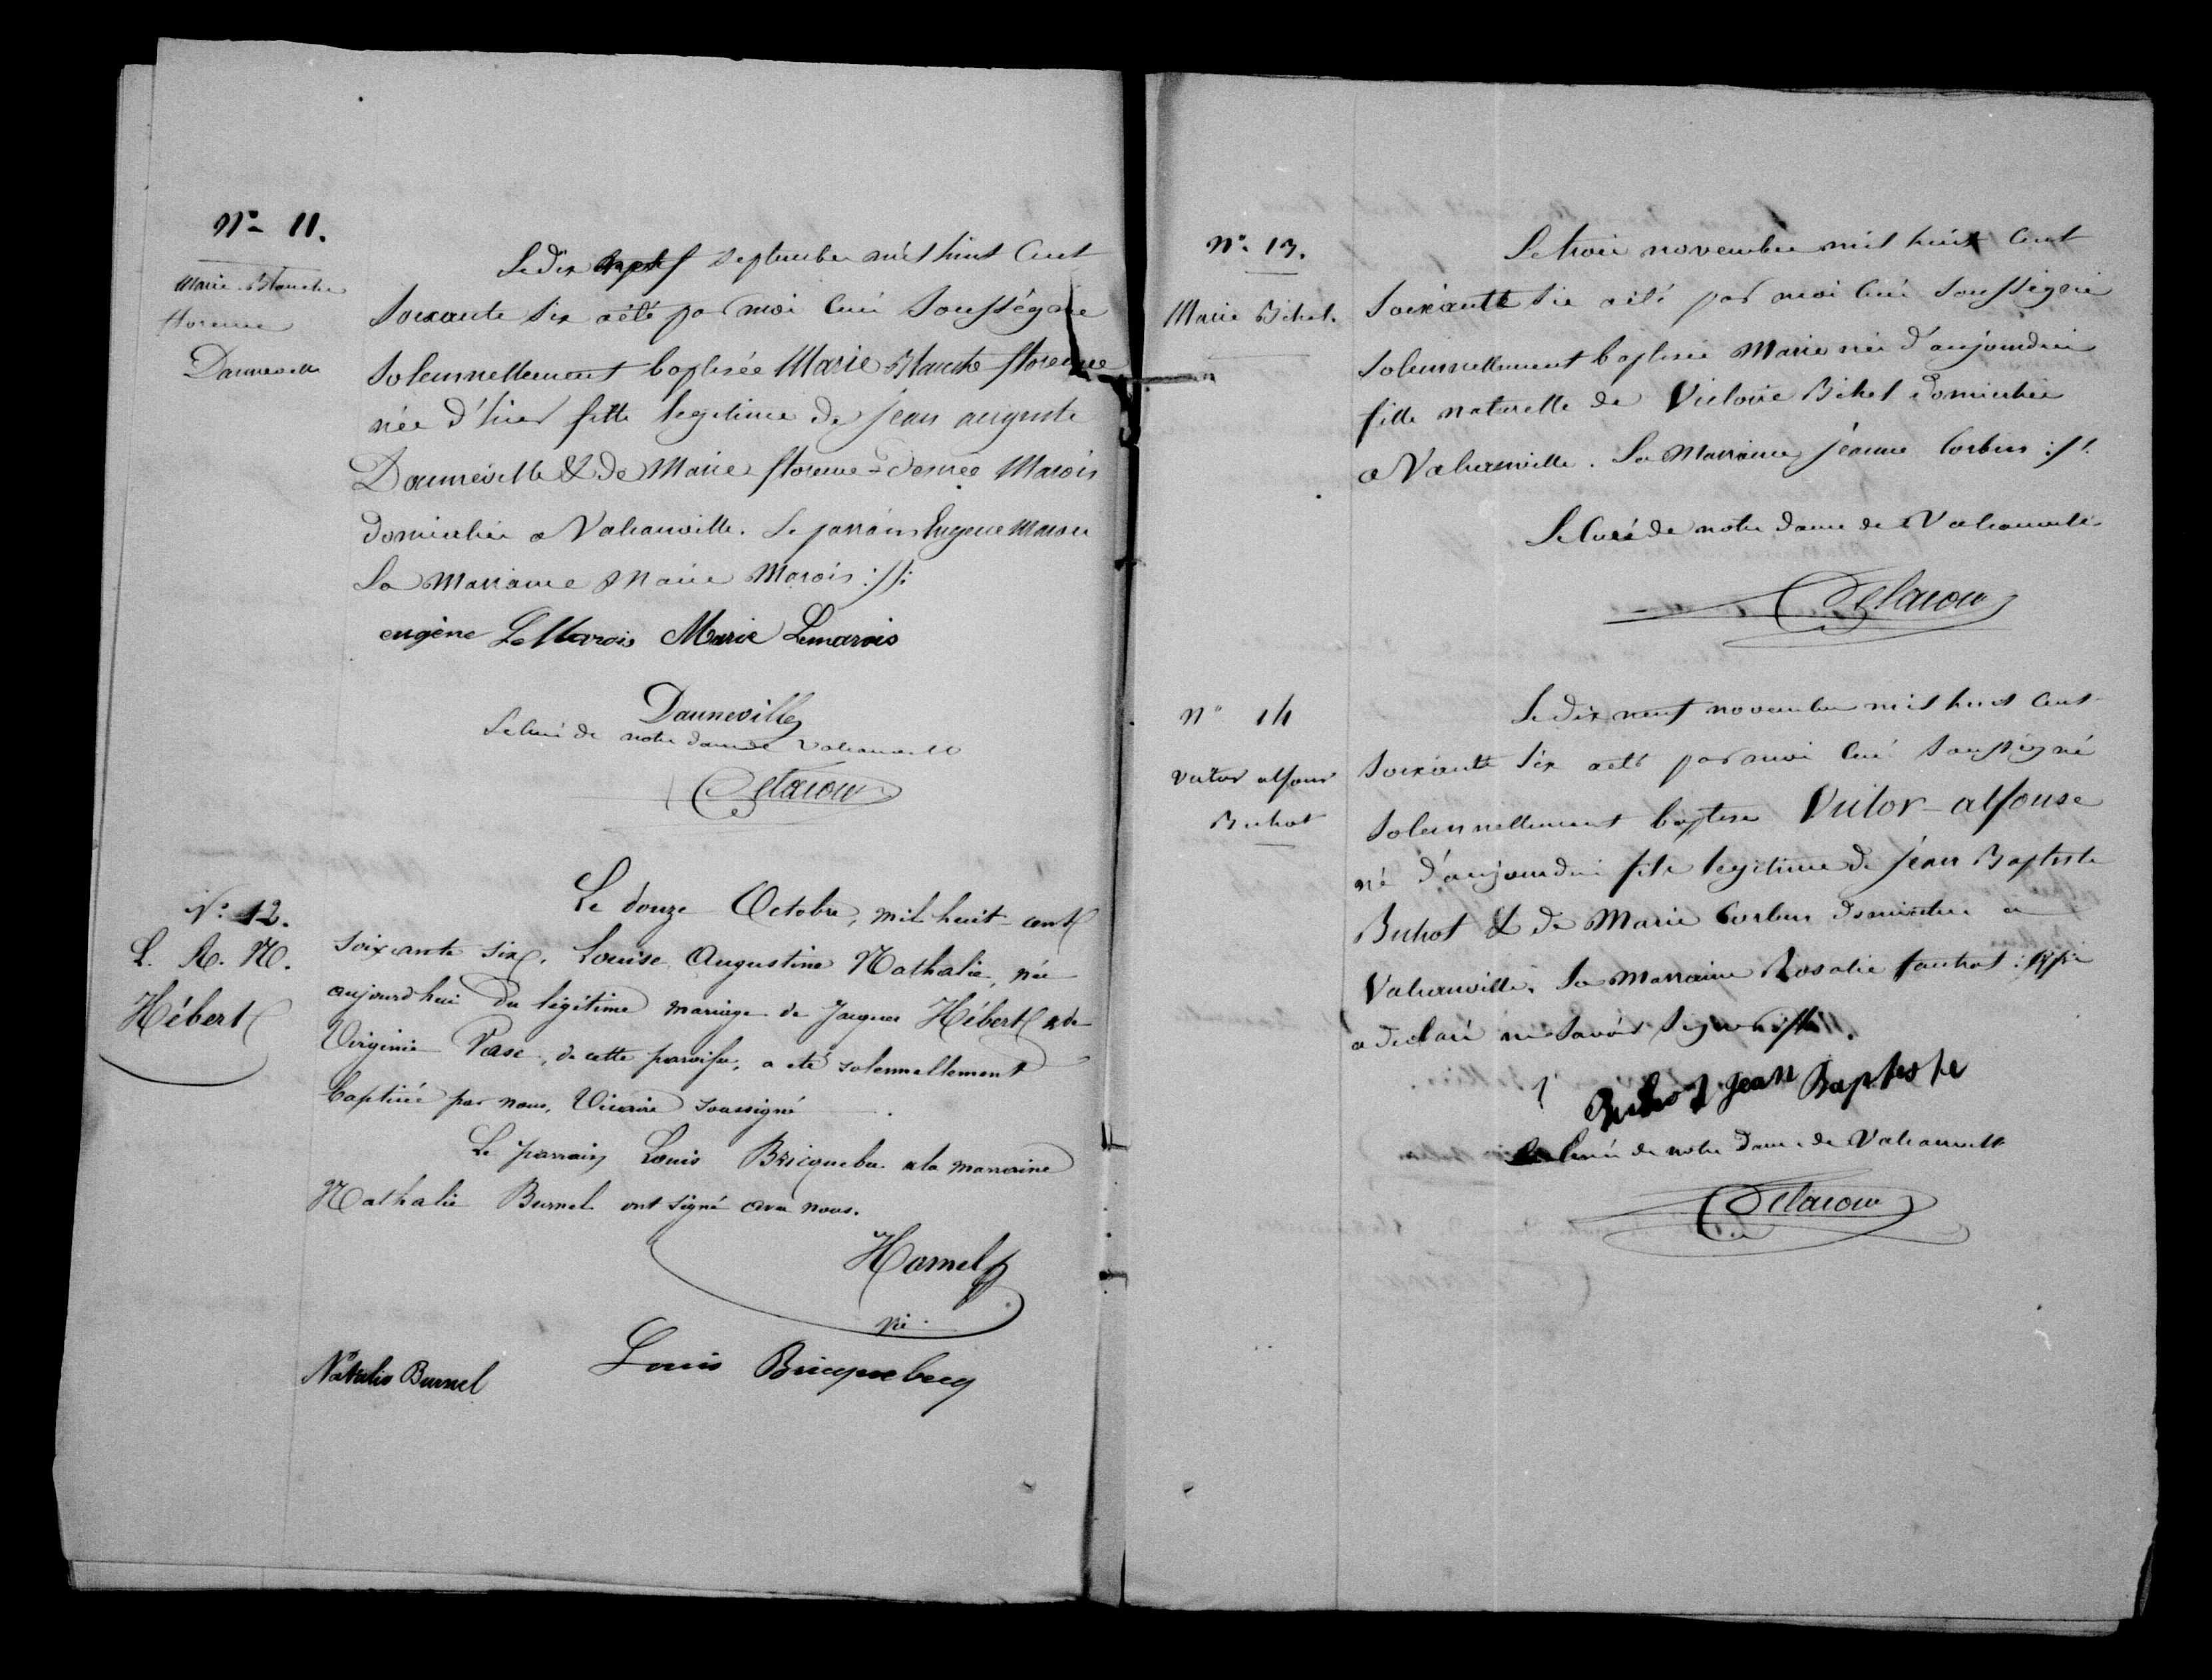 N° 11.
Marie-Blanche
florence
Danneville
Le dix sept septembre mil huit Cent
soixante six a été par moi Curé soussigné
solennellement baptisée Marie Blanche florence
née d'hier fille legitime de jean auguste
Danneville & de Marie florence-desirée Marois
domiciliée a Valcanville. Le parrain Eugene Marois
La Marraine Marie Marois :/:
eugène LeMarois Marie Lemarois
Danneville
Le Curé de notre dame de Valcanville
Delacour
N° 12.
L. A. N.
Hébert
Le douze Octobre, mil huit-cent
soixante six, Louise Augustine Nathalie, née
aujourd'hui du légitime mariage de Jacques Hébert & de
Virginie Vase, de cette paroisse, a été solennellement
baptisée par nous, Vicaire soussigné
Le parrain Louis Bricquebec & la marraine
Nathalie Burnel ont signé avec nous.
Hamel
vic.
Natalie Burnel Louis Bricquebecq
N° 13.
Marie Bihel.
Le trois novembre mil huit Cent
soixante six a été par moi Curé soussigné
solennellement baptisée Marie née d'aujourdui
fille naturelle de Victoire Bihel domiciliée
a Valcanville. La Marraine jeanne Corbin :/:
Le Curé de notre dame de Valcanville
Delacour
N° 14
Victor alfonse
Buhot
Le dix neuf novembre mil huit Cent
soixante six a été par moi Curé soussigné
solennellement baptisé Victor-alfonse
né d'aujourdui fils legitime de jean Baptiste
Buhot & de Marie Corbin domiciliée a
Valcanville. La Marraine Rosalie
a declaré ne savoir signer
Buhot jean Baptiste
Le Curé de notre Dame de Valcanville
Delacour